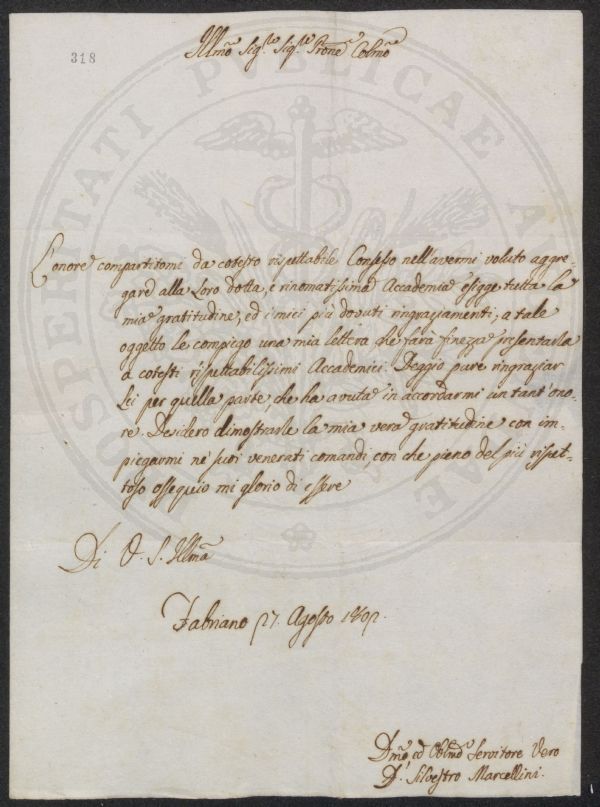 318
Illmō Sig.re Sig.re Prone Colmō
L'onore compartitomi da cotesto rispettabile Consesso nell'avermi voluto aggre-
gare alla Loro dotta, e rinomatissima Accademia esigge tutta la
mia gratitudine, ed i miei più dovuti ringraziamenti; a tale
oggetto le compiego una mia lettera che farà finezza presentarla
a cotesti rispettabilissimi Accademici. Deggio pure ringraziar
Lei per quella parte, che ha avuta in accordarmi un tant'ono-
re. Desidero dimostrarle la mia vera gratitudine con im-
piegarmi ne suoi venerati comandi, con che pieno del più rispet-
toso ossequio mi glorio di essere
Di V. S. Illmā
Fabriano 27. Agosto 1802.
Dmō ed Obblmō Servitore Vero
D. Silvestro Marcellini.
PROSPERITATI PUBLICAE AUGENDAE